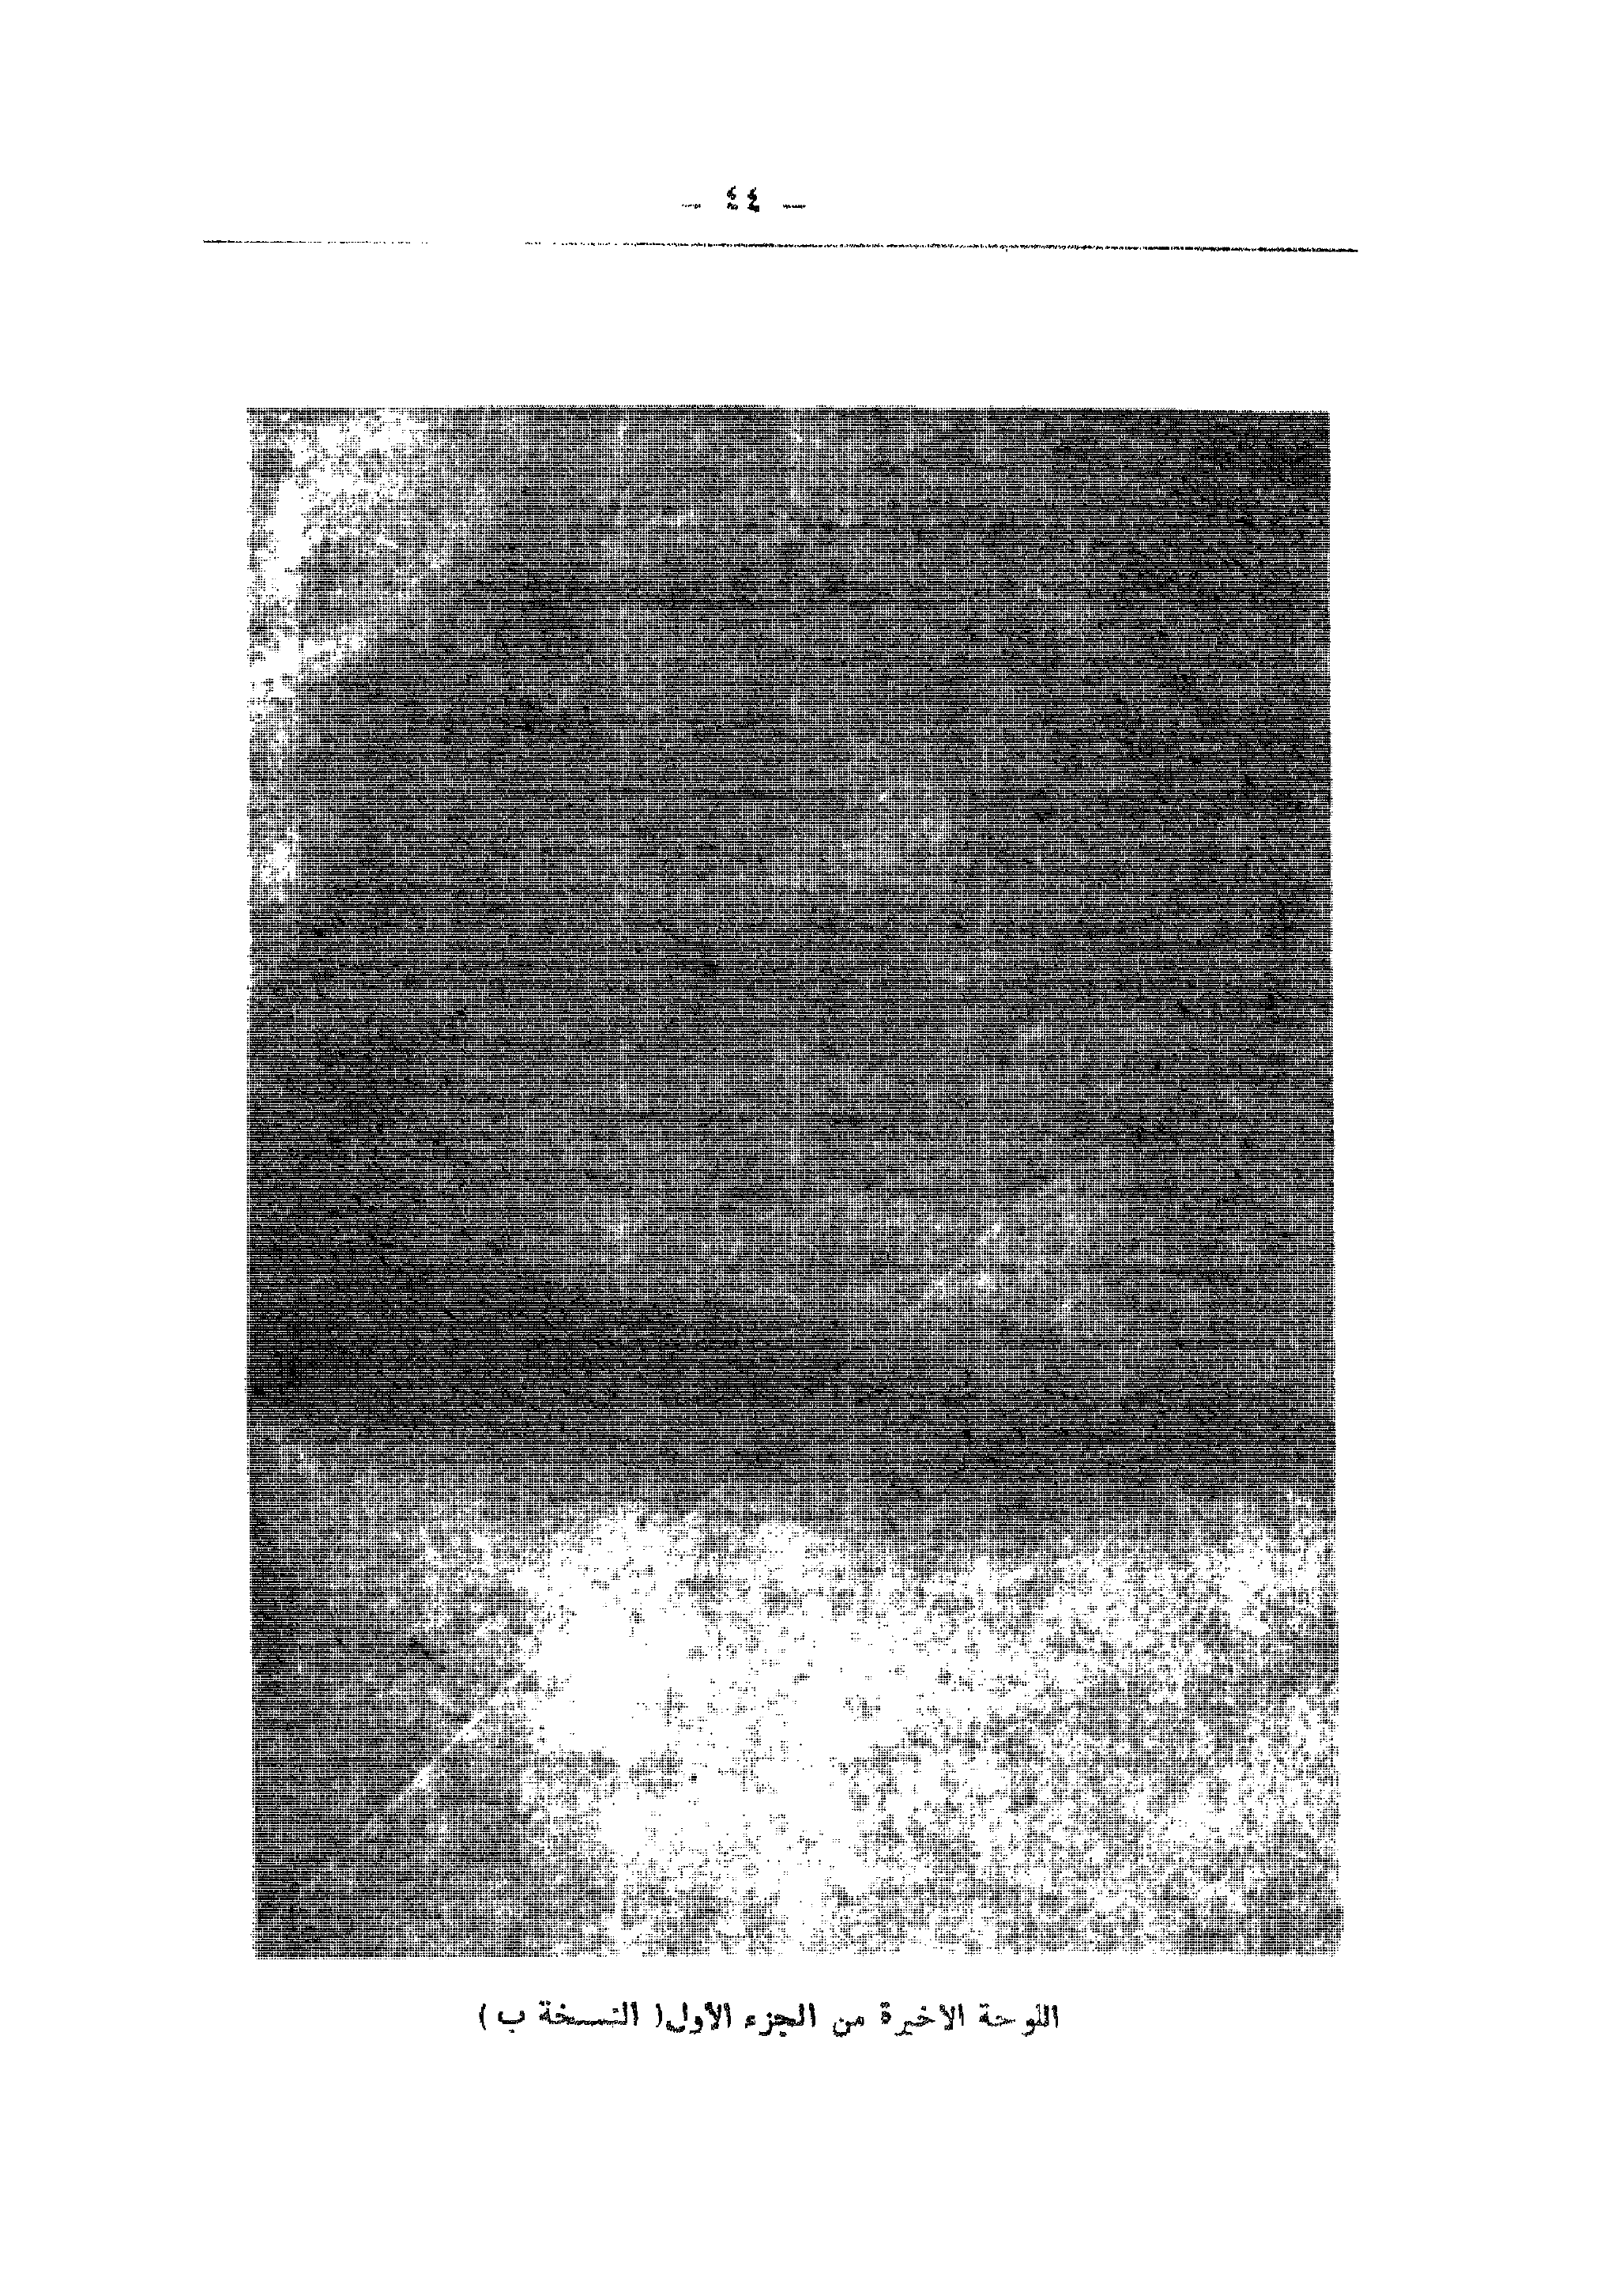 - ٤٤ -
اللوحة الاخيرة من الجزء الاول ( النسخة ب )